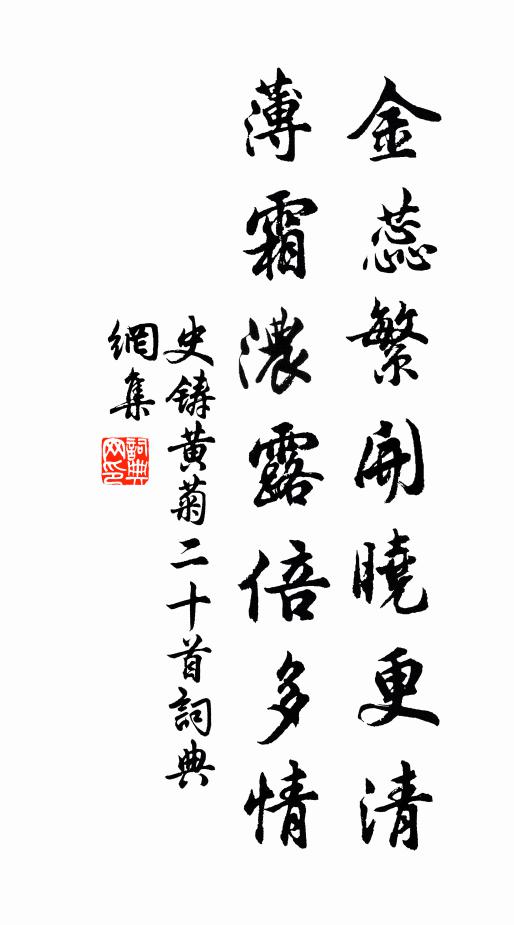 金蕊繁開曉更清
薄霜濃露倍多情
史鑄黃菊二十首詞典
網集
詞典
网印